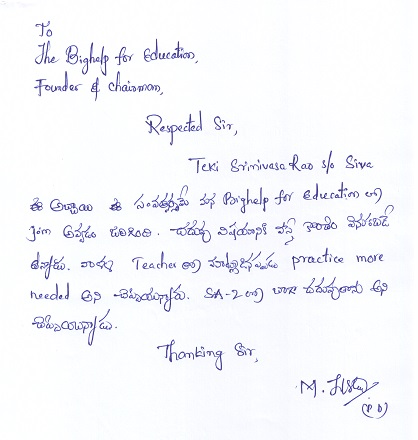 To
The Bighelp for Education,
Founder & chairman,
Respected Sir,
Teki Srinivasa Rao s/o Siva
ఈ అబ్బాయి ఈ సంవత్సరమే మన Bighelp for Education లో
join అవ్వడం జరిగింది. చదువు విషయానికి వస్తే కొంతం వెనుకబడి
ఉన్నాడు. Teacher తో మాట్లాడినప్పుడు practice more
needed అని చెప్పియున్నారు. SA-2 లో బాగా చదువుతాను అని
చెప్పియున్నాడు.
Thanking Sir,
M.
(P.D)